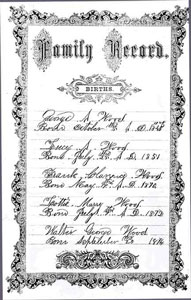 Family Record.
BIRTHS.
George A. Wood
Born October A.D. 18
Lucy A. Wood
Born July A.D. 1851
Frank Wood
Born May A.D. 1870
Mary Wood
Born July A.D. 1873
Walter George Wood
Born September 1876